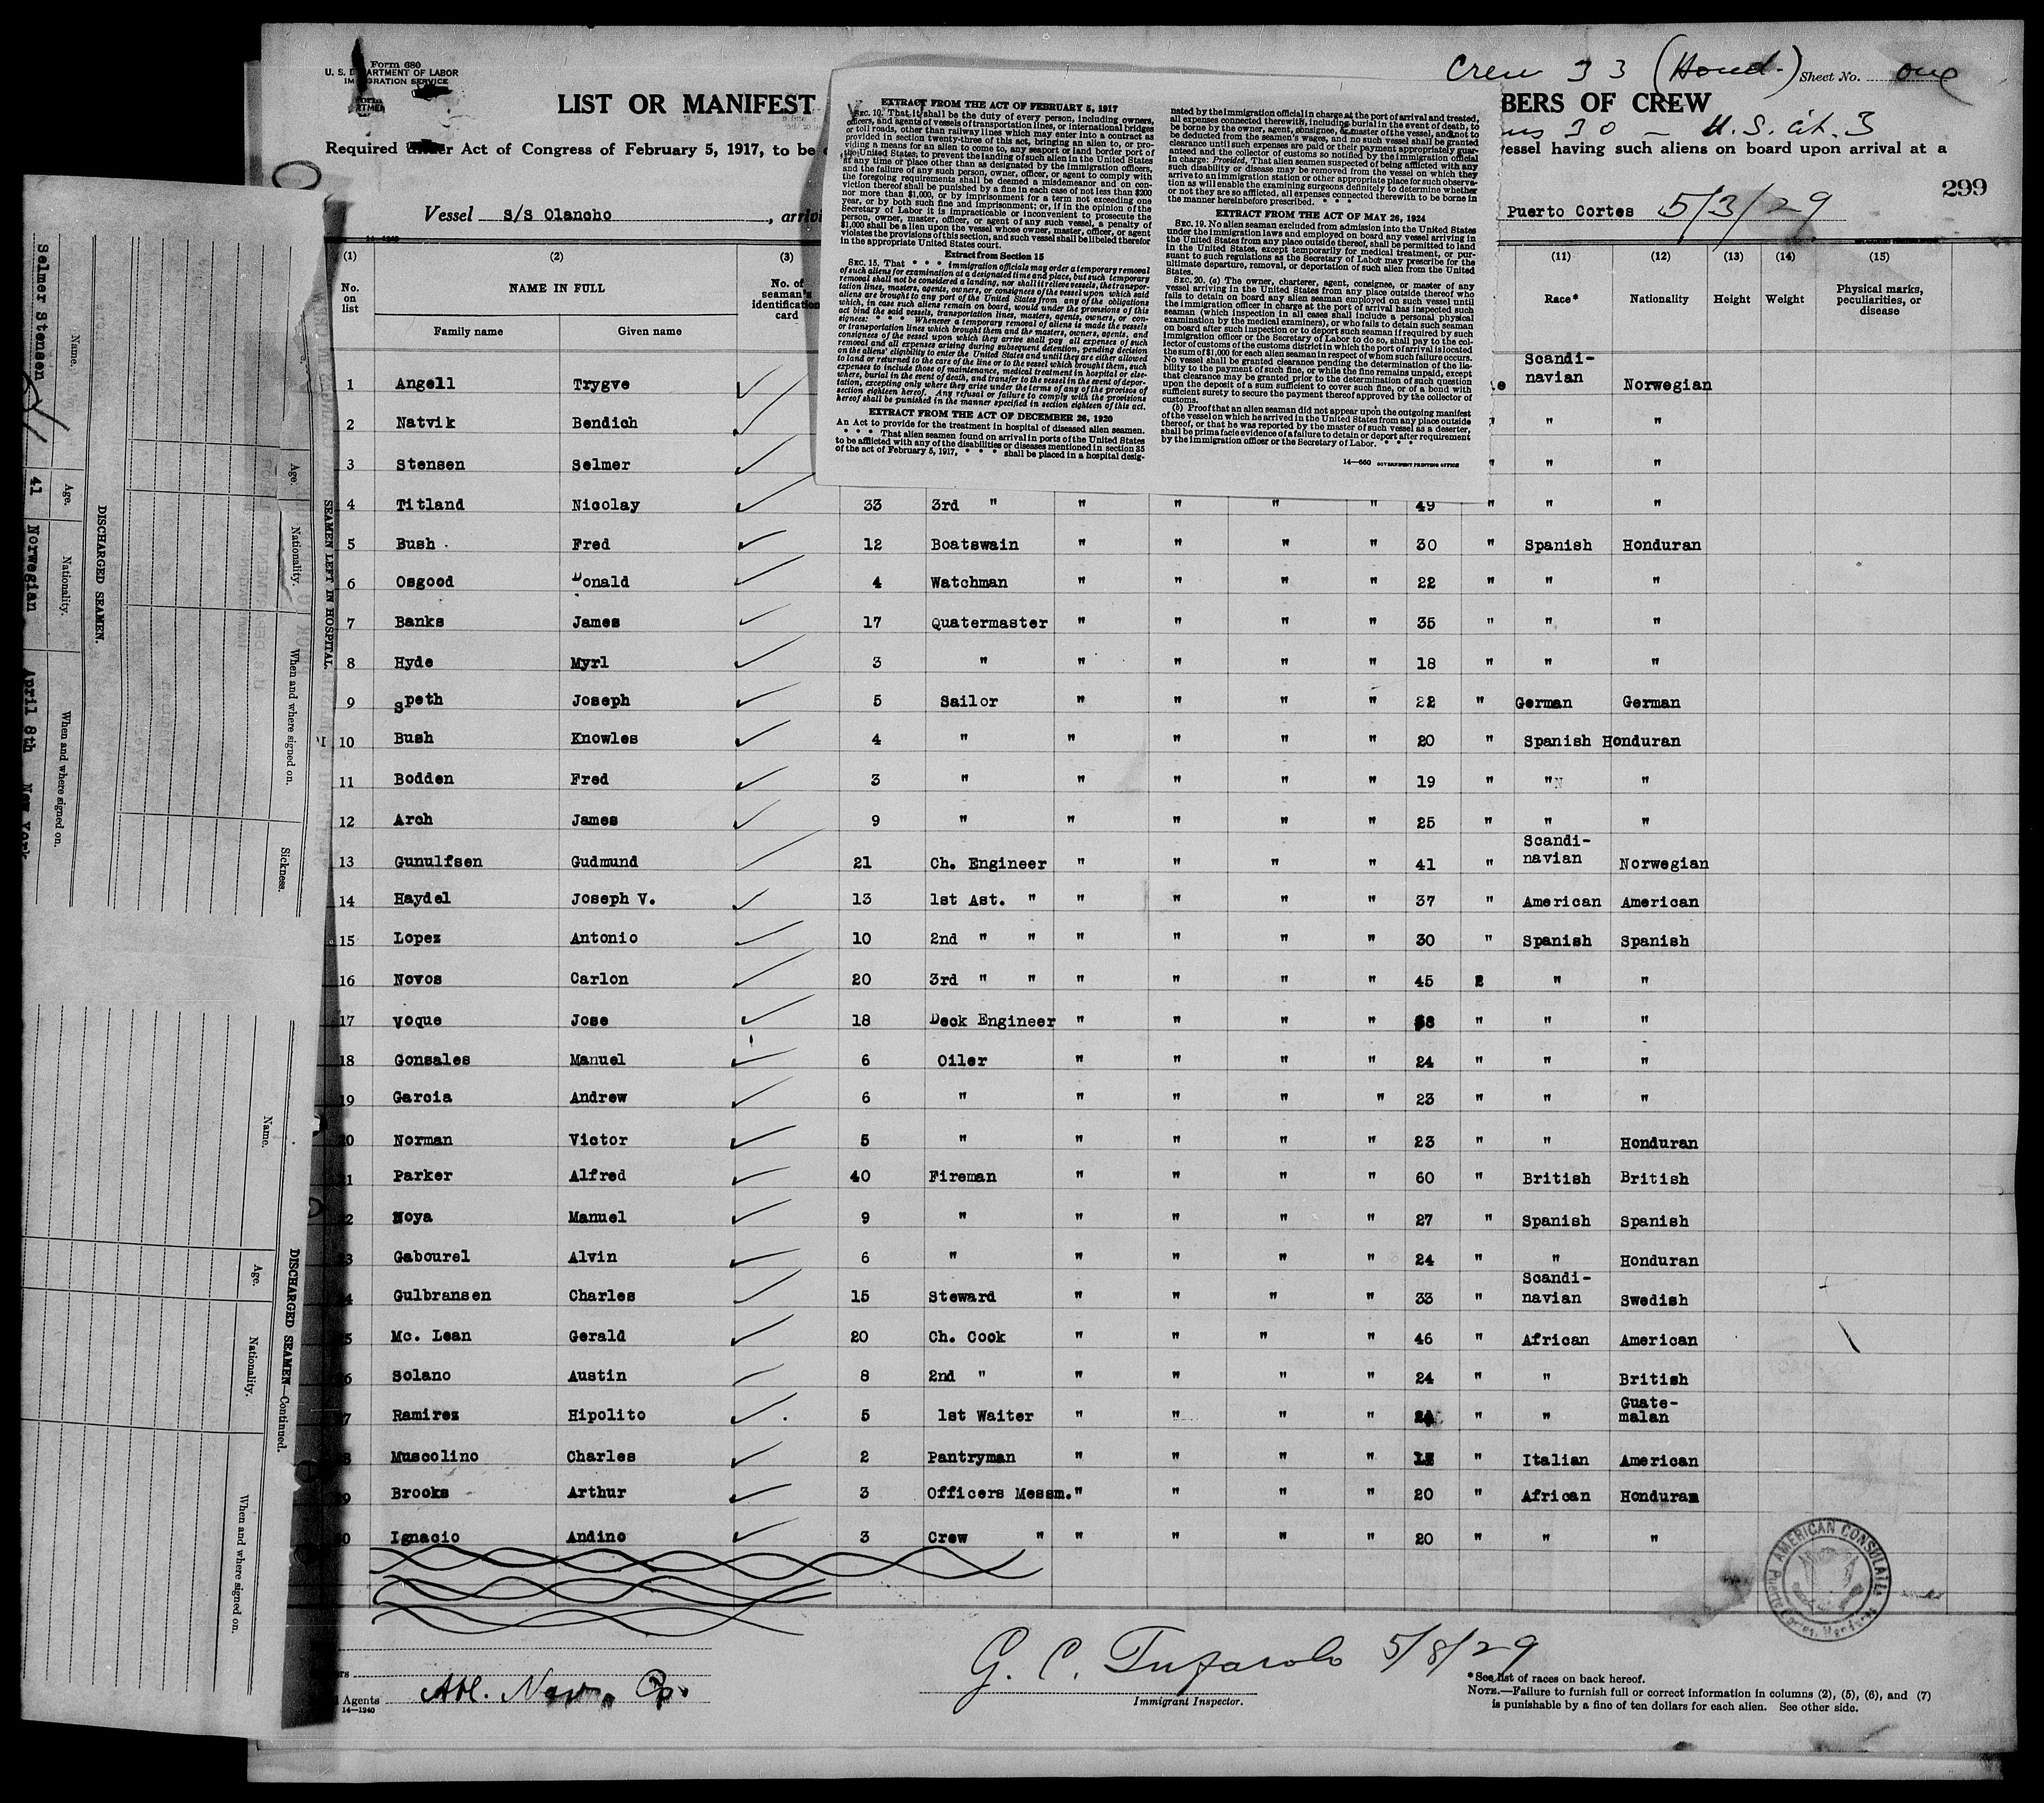 Form 680
U. S. DEPARTMENT OF LABOR
IMMIGRATION SERVICE
Crew 33 (Hond.) Sheet No. one
LIST OR MANIFEST
BERS OF CREW
30 — U.S. cit. 3
Required under Act of Congress of February 5, 1917, to be
vessel having such aliens on board upon arrival at a
299
Vessel S/S Olancho, arrivi
Puerto Cortes 5/3/29
14—1240
EXTRACT FROM THE ACT OF FEBRUARY 5, 1917
SEC. 10. That it shall be the duty of every person, including owners,
officers, and agents of vessels of transportation lines, or international bridges
or toll roads, other than railway lines which may enter into a contract as
provided in section twenty-three of this act, bringing an alien to, or pro-
viding a means for an alien to come to, any seaport or land border port of
the United States, to prevent the landing of such alien in the United States
at any time or place other than as designated by the immigration officers,
and the failure of any such person, owner, officer, or agent to comply with
the foregoing requirements shall be deemed a misdemeanor and on con-
viction thereof shall be punished by a fine in each case of not less than $200
nor more than $1,000, or by imprisonment for a term not exceeding one
year, or by both such fine and imprisonment; or, if in the opinion of the
Secretary of Labor it is impracticable or inconvenient to prosecute the
person, owner, master, officer, or agent of any such vessel, a penalty of
$1,000 shall be a lien upon the vessel whose owner, master, officer, or agent
violates the provisions of this section, and such vessel shall be libeled therefor
in the appropriate United States court.
Extract from Section 15
SEC. 15. That * * * immigration officials may order a temporary removal
of such aliens for examination at a designated time and place, but such temporary
removal shall not be considered a landing, nor shall it relieve vessels, the transpor-
tation lines, masters, agents, owners, or consignees of the vessel upon which said
aliens are brought to any port of the United States from any of the obligations
which, in case such aliens remain on board, would under the provisions of this
act bind the said vessels, transportation lines, masters, agents, owners, or con-
signees: * * * Whenever a temporary removal of aliens is made the vessels
or transportation lines which brought them and the masters, owners, agents, and
consignees of the vessel upon which they arrive shall pay all expenses of such
removal and all expenses arising during subsequent detention, pending decision
on the aliens' eligibility to enter the United States and until they are either allowed
to land or returned to the care of the line or to the vessel which brought them, such
expenses to include those of maintenance, medical treatment in hospital or else-
where, burial in the event of death, and transfer to the vessel in the event of depor-
tation, excepting only where they arise under the terms of any of the provisos of
section eighteen hereof. Any refusal or failure to comply with the provisions
hereof shall be punished in the manner specified in section eighteen of this act.
EXTRACT FROM THE ACT OF DECEMBER 26, 1920
An Act to provide for the treatment in hospital of diseased alien seamen.
* * * That alien seamen found on arrival in ports of the United States
to be afflicted with any of the disabilities or diseases mentioned in section 35
of the act of February 5, 1917, * * * shall be placed in a hospital desig-
nated by the immigration official in charge at the port of arrival and treated,
all expenses connected therewith, including burial in the event of death, to
be borne by the owner, agent, consignee, or master of the vessel, and not to
be deducted from the seamen's wages, and no such vessel shall be granted
clearance until such expenses are paid or their payment appropriately guar-
anteed and the collector of customs so notified by the immigration official
in charge: Provided, That alien seamen suspected of being afflicted with any
such disability or disease may be removed from the vessel on which they
arrive to an immigration station or other appropriate place for such observa-
tion as will enable the examining surgeons definitely to determine whether
or not they are so afflicted, all expenses connected therewith to be borne in
the manner hereinbefore prescribed. * * *
EXTRACT FROM THE ACT OF MAY 26, 1924
SEC. 19. No alien seaman excluded from admission into the United States
under the immigration laws and employed on board any vessel arriving in
the United States from any place outside thereof, shall be permitted to land
in the United States, except temporarily for medical treatment, or pur-
suant to such regulations as the Secretary of Labor may prescribe for the
ultimate departure, removal, or deportation of such alien from the United
States.
SEC. 20. (a) The owner, charterer, agent, consignee, or master of any
vessel arriving in the United States from any place outside thereof who
fails to detain on board any alien seaman employed on such vessel until
the immigration officer in charge at the port of arrival has inspected such
seaman (which inspection in all cases shall include a personal physical
examination by the medical examiners), or who fails to detain such seaman
on board after such inspection or to deport such seaman if required by such
immigration officer or the Secretary of Labor to do so, shall pay to the col-
lector of customs of the customs district in which the port of arrival is located
the sum of $1,000 for each alien seaman in respect of whom such failure occurs.
No vessel shall be granted clearance pending the determination of the lia-
bility to the payment of such fine, or while the fine remains unpaid, except
that clearance may be granted prior to the determination of such question
upon the deposit of a sum sufficient to cover such fine, or of a bond with
sufficient surety to secure the payment thereof approved by the collector of
customs.
(b) Proof that an alien seaman did not appear upon the outgoing manifest
of the vessel on which he arrived in the United States from any place outside
thereof, or that he was reported by the master of such vessel as a deserter,
shall be prima facie evidence of a failure to detain or deport after requirement
by the immigration officer or the Secretary of Labor. * * *
14—680 GOVERNMENT PRINTING OFFICE
(1) (2) (3) (11) (12) (13) (14) (15)
No. on list NAME IN FULL Family name Given name No. of seaman's identification card Race* Nationality Height Weight Physical marks, peculiarities, or disease
1 Angell Trygve Scandi-navian Norwegian
2 Natvik Bendich " " "
3 Stensen Selmer " " "
4 Titland Nicolay 33 3rd " " " " " 49 " " "
5 Bush Fred 12 Boatswain " " " " 30 " Spanish Honduran
6 Osgood Donald 4 Watchman " " " " 22 " " "
7 Banks James 17 Quatermaster " " " " 35 " " "
8 Hyde Myrl 3 " " " " " 18 " " "
9 Speth Joseph 5 Sailor " " " " 22 " German German
10 Bush Knowles 4 " " " " " 20 " Spanish Honduran
11 Bodden Fred 3 " " " " " 19 " " "
12 Arch James 9 " " " " " 25 " " "
13 Gunulfsen Gudmund 21 Ch. Engineer " " " " 41 " Scandi-navian Norwegian
14 Haydel Joseph V. 13 1st Ast. " " " " " 37 " American American
15 Lopez Antonio 10 2nd " " " " " " 30 " Spanish Spanish
16 Novos Carlon 20 3rd " " " " " " 45 2 " "
17 Voque Jose 18 Deck Engineer " " " " " " "
18 Gonsales Manuel 6 Oiler " " " " 24 " " "
19 Garcia Andrew 6 " " " " " 23 " " "
20 Norman Victor 5 " " " " " 23 " " Honduran
21 Parker Alfred 40 Fireman " " " " 60 " British British
22 Noya Manuel 9 " " " " " 27 " Spanish Spanish
23 Gabourel Alvin 6 " " " " " 24 " " Honduran
24 Gulbransen Charles 15 Steward " " " " 33 " Scandi-navian Swedish
25 Mc. Lean Gerald 20 Ch. Cook " " " " 46 " African American
26 Solano Austin 8 2nd " " " " " 24 " " British
27 Ramirez Hipolito 5 1st Waiter " " " " " " Guate-malan
28 Muscolino Charles 2 Pantryman " " " " " Italian American
29 Brooks Arthur 3 Officers Messm. " " " " 20 " African Honduran
30 Ignacio Andino 3 Crew " " " " " 20 " " "
AMERICAN CONSULATE
Puerto Cortes, Honduras
Agents Atl. Nav. Co.
14—1240
G. C. Tufarolo 5/8/29
Immigrant Inspector.
*See list of races on back hereof.
NOTE.—Failure to furnish full or correct information in columns (2), (5), (6), and (7)
is punishable by a fine of ten dollars for each alien. See other side.
SEAMEN LEFT IN HOSPITAL.
Age. Nationality. When and where signed on. Sickness.
DISCHARGED SEAMEN.
Name. Age. Nationality. When and where signed on.
Selmer Stensen 41 Norwegian April 8th New York
DISCHARGED SEAMEN—Continued.
Name. Age. Nationality. When and where signed on.